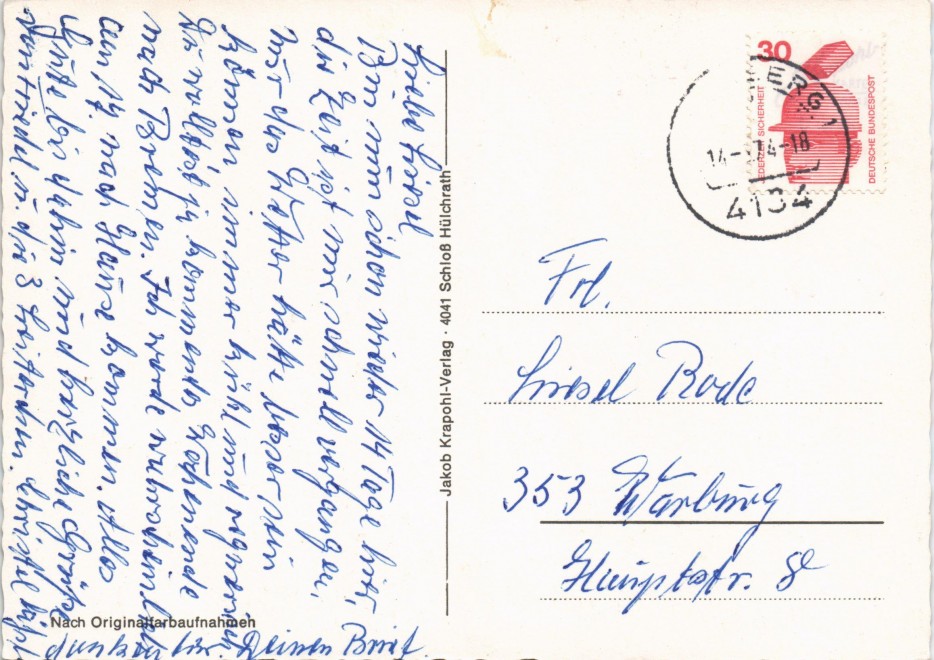 Liebe Liesel
Bin nun schon wieder 14 Tage hier,
die Zeit ist mir schnell vergangen.
Nur das Wetter hätte besser sein
können immer kühl und regnerisch
Du wolltest ja kommende Wochenende
nach Bremen. Ich werde wahrscheinlich
am 17. nach Hause kommen. Alles
Gute bis dahin und herzliche Grüße
läßt
danken für Deinen Brief.
Nach Originalfarbaufnahmen
Jakob Krapohl-Verlag · 4041 Schloß Hülchrath
30
JEDERZEIT SICHERHEIT
DEUTSCHE BUNDESPOST
BERG 1
14-18
4134
Frl.
Liesel Rode
353 Warburg
Hauptstr. 8